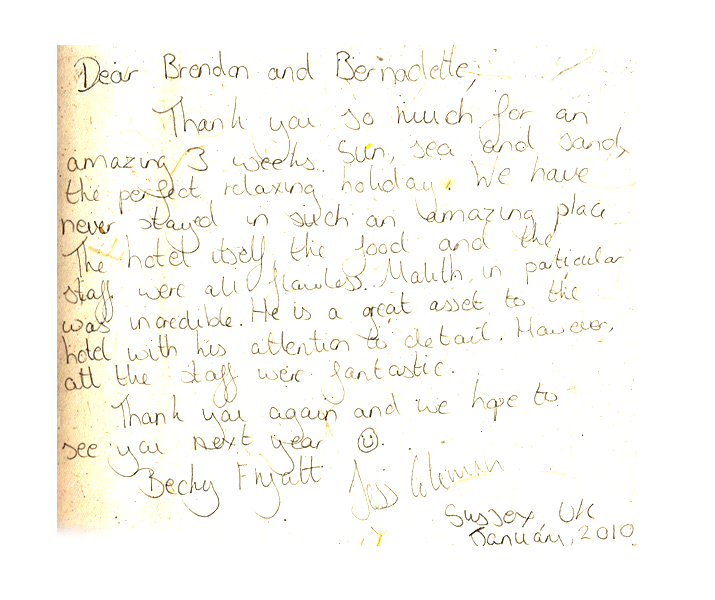 Dear Brendon and Bernadette,
Thank you so much for an
amazing 3 weeks. Sun, sea and sand,
the perfect relaxing holiday. We have
never stayed in such an amazing place
The hotel itself the food and the
staff were all flawless. Malith, in particular
was incredible. He is a great asset to the
hotel with his attention to detail. However,
all the staff were fantastic.
Thank you again and we hope to
see you next year ☺.
Becky Fryatt Jess Coleman
Sussex, UK
January, 2010